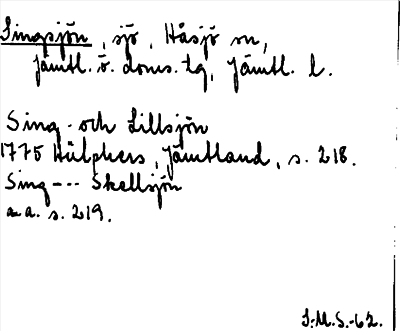 Singsjön, sjö, Håsjö sn,
Jämtl. ö. doms. tg, Jämtl. l.
Sing- och Lillsjön
1775 Hülphers, Jämtland, s. 218.
Sing--- Skallsjön
a.a. s. 219.
I.M.S.-62.